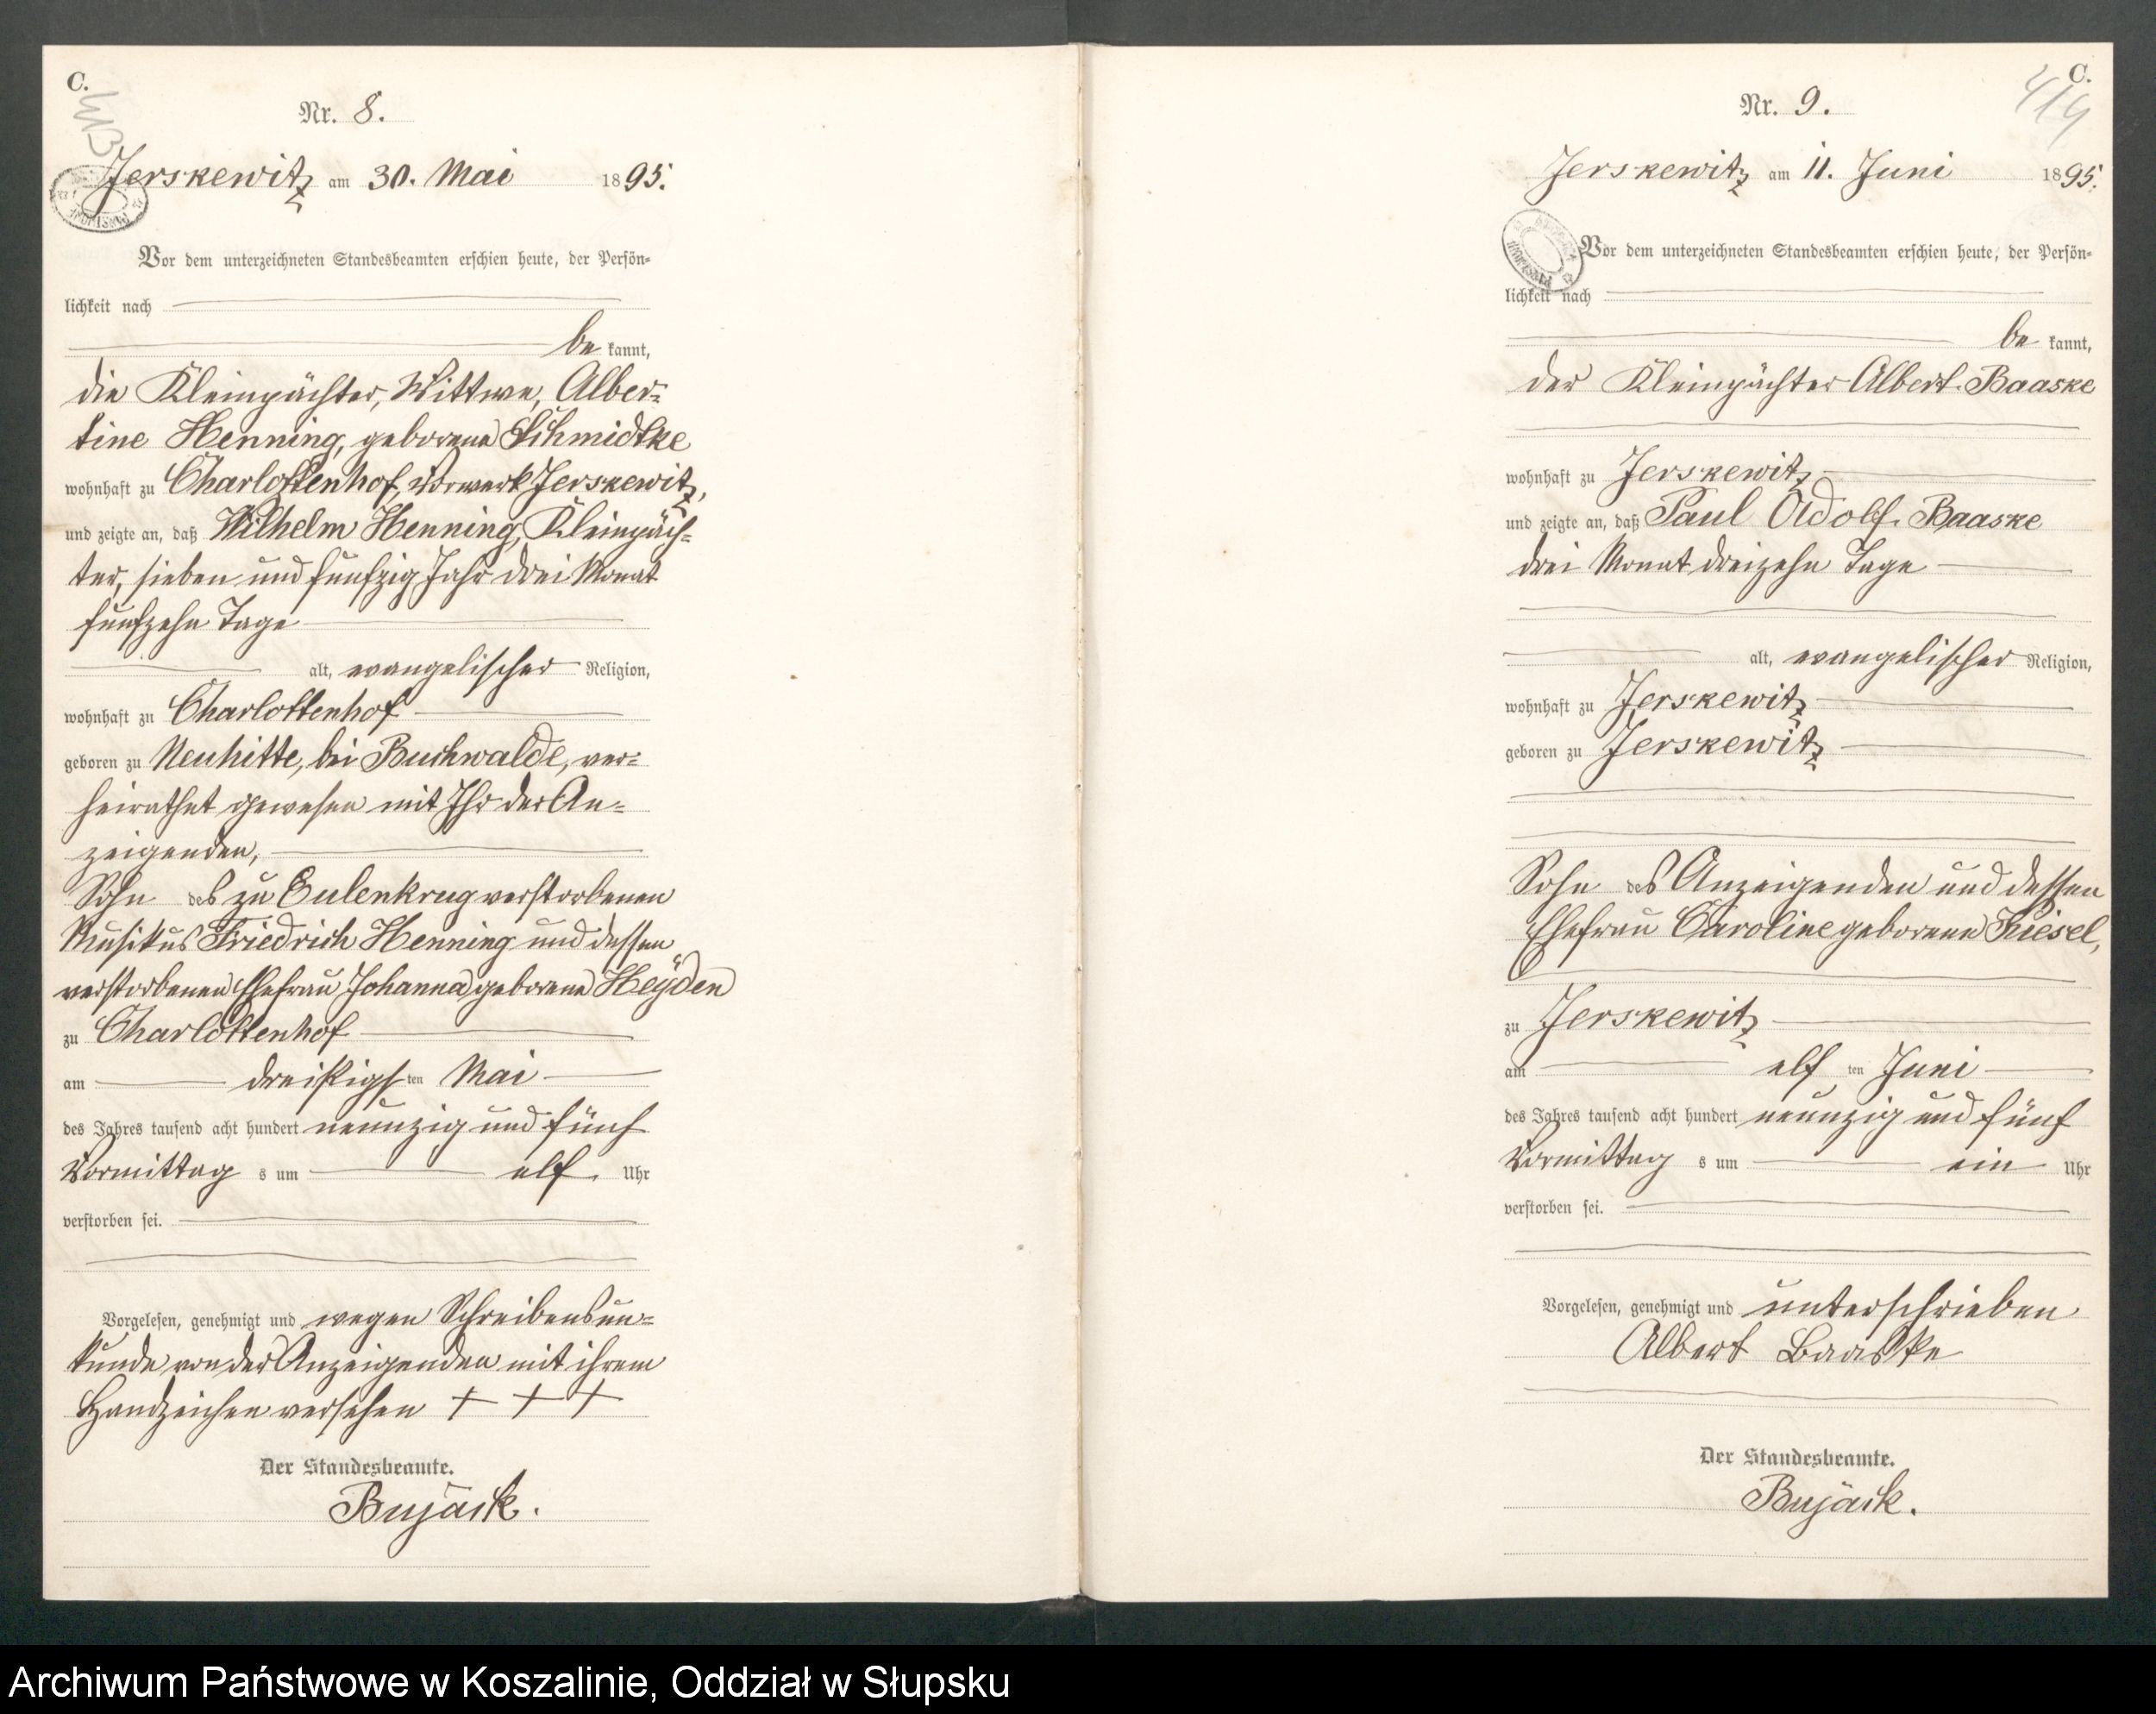 C.
Nr. 8.
Jerskewitz am 30. Mai 1895.
Vor dem unterzeichneten Standesbeamten erschien heute, der Persön-
lichkeit nach
be kannt,
die Kleinpächter, Wittwe, Alber-
tine Henning, geborene Schmidtke
wohnhaft zu Charlottenhof, Vorwerk Jerskewitz,
und zeigte an, daß Wilhelm Henning, Kleinpäch-
ter, sieben und fünfzig Jahr drei Monat
fünfzehn Tage
alt, evangelischer Religion,
wohnhaft zu Charlottenhof
geboren zu Neuhitte, bei Buchwalde, ver-
heirathet gewesen mit Ihr der An-
zeigenden,
Sohn des zu Eulenkrug verstorbenen
Musikus Friedrich Henning und dessen
verstorbenen Ehefrau Johanna geborene Heyden
zu Charlottenhof
am dreißigsten Mai
des Jahres tausend acht hundert neunzig und fünf
Vormittag s um elf Uhr
verstorben sei.
Vorgelesen, genehmigt und wegen Schreibensun-
kunde von der Anzeigenden mit ihrem
Handzeichen versehen + + +
Der Standesbeamte.
Bujack.
C.
419
Nr. 9.
Jerskewitz am 11. Juni 1895.
Vor dem unterzeichneten Standesbeamten erschien heute, der Persön-
lichkeit nach
be kannt,
der Kleinpächter Albert Baaske
wohnhaft zu Jerskewitz
und zeigte an, daß Paul Adolf Baaske
drei Monat dreizehn Tage
alt, evangelischer Religion,
wohnhaft zu Jerskewitz
geboren zu Jerskewitz
Sohn des Anzeigenden und dessen
Ehefrau Caroline geborene Kiesel,
zu Jerskewitz
am elf ten Juni
des Jahres tausend acht hundert neunzig und fünf
Vormittag s um ein Uhr
verstorben sei.
Vorgelesen, genehmigt und unterschrieben
Albert Baaske
Der Standesbeamte.
Bujack.
Archiwum Państwowe w Koszalinie, Oddział w Słupsku